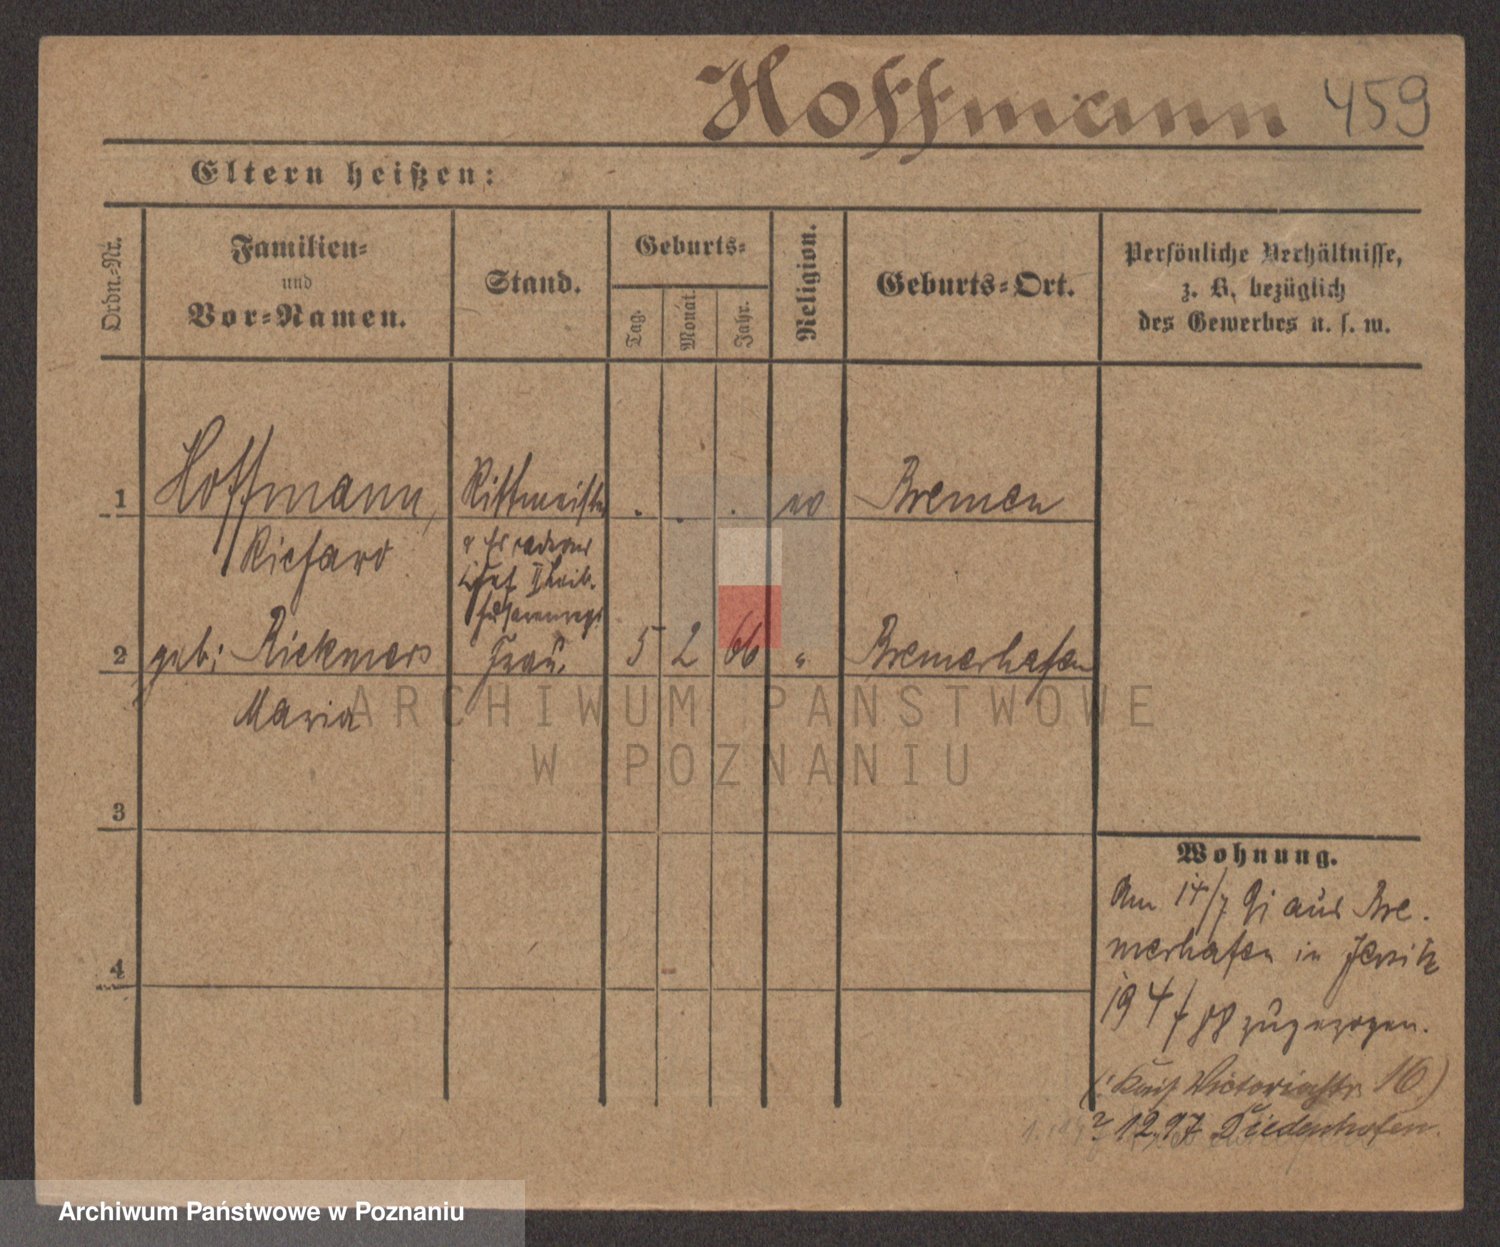 Hoffmann 459
Eltern heißen:
Ordn.-Nr.
Familien-
und
Vor-Namen.
Stand.
Geburts-
Tag.
Monat.
Jahr.
Religion.
Geburts-Ort.
Persönliche Verhältnisse,
z. B. bezüglich
des Gewerbes u. s. w.
1 Hoffmann, Rittmeister . . . Bremen
Richard
2 geb: Rickmers Frau 5 2 66 " Bremerhafen
Maria
3
4
Wohnung.
Am 14/7 91 aus Bre-
merhafen in Jersitz
zugezogen.
Victoriastr. 16)
12 97 Diedenhofen.
ARCHIWUM PAŃSTWOWE
W POZNANIU
Archiwum Państwowe w Poznaniu